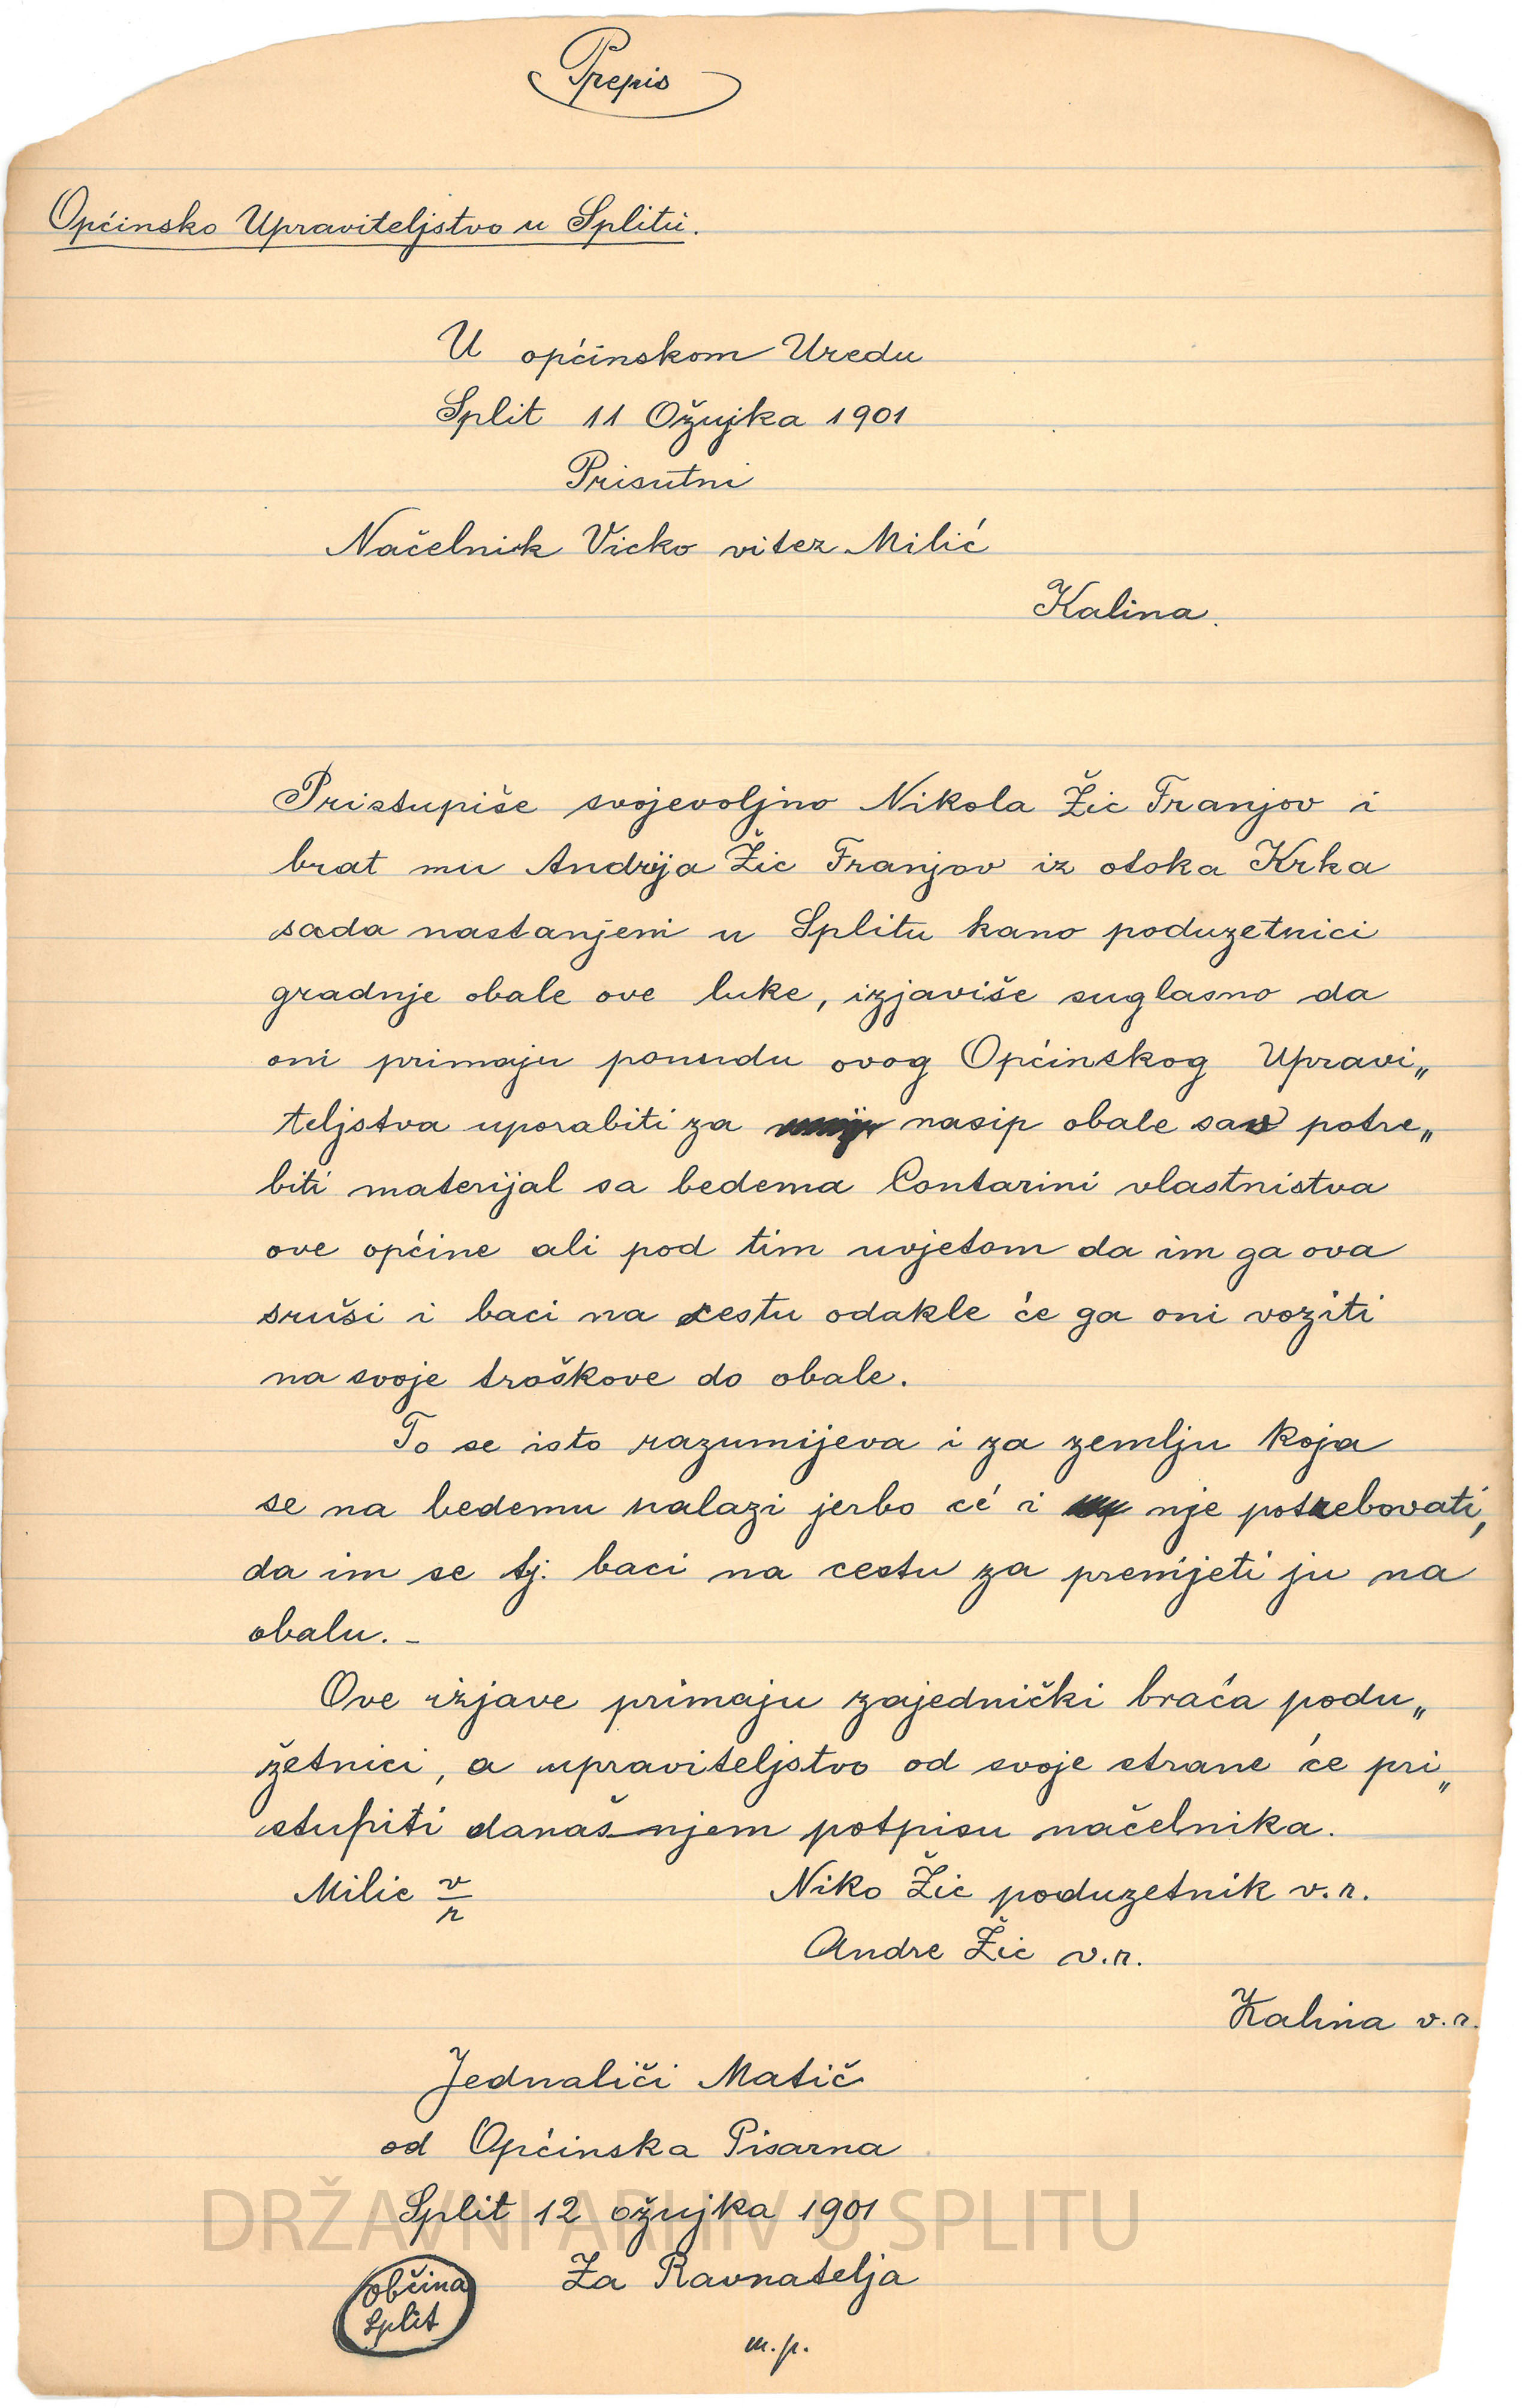 Prepis
Općinsko Upraviteljstvo u Splitu.
U općinskom Uredu
Split 11 Ožujka 1901
Prisutni
Načelnik Vicko vitez Milić
Kalina.
Pristupiše svojevoljno Nikola Žic Franjov i
brat mu Andrija Žic Franjov iz otoka Krka
sada nastanjeni u Splitu kano poduzetnici
gradnje obale ove luke, izjaviše suglasno da
oni primaju ponudu ovog Općinskog Upravi„
teljstva uporabiti za nasip obale sav potre„
biti materijal sa bedema Contarini vlastnistva
ove općine ali pod tim uvjetom da im ga ova
sruši i baci na cestu odakle će ga oni voziti
na svoje troškove do obale.
To se isto razumijeva i za zemlju koja
se na bedemu nalazi jerbo će i nje potrebovati,
da im se tj. baci na cestu za prenijeti ju na
obalu. -
Ove izjave primaju zajednički braća podu„
žetnici, a upraviteljstvo od svoje strane će pri„
stupiti današnjem potpisu načelnika.
Milic v/r Niko Žic poduzetnik v.r.
Andre Žic v.r.
Kalina v.r.
Jednaliči Matič
od Općinska Pisarna
Split 12 ožujka 1901
DRŽAVNI ARHIV U SPLITU
Za Ravnatelja
Občina
Split
m.p.